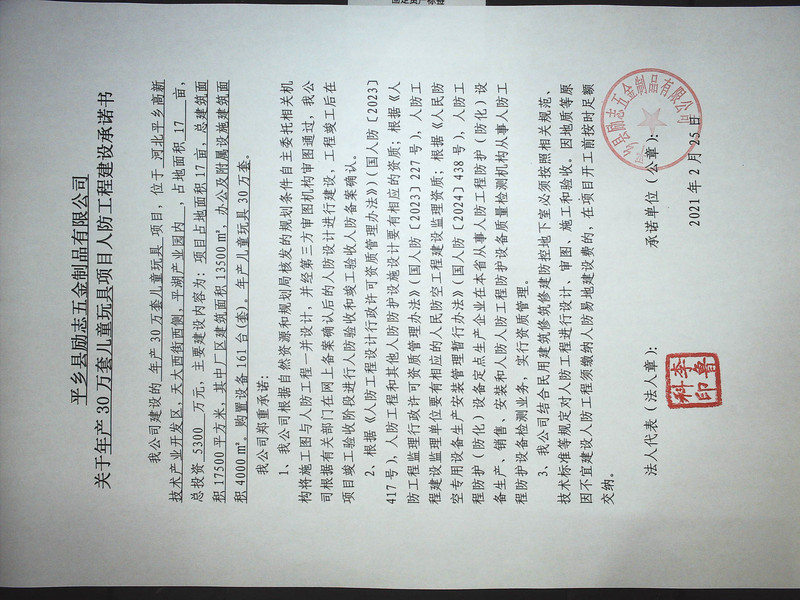 平乡县励志五金制品有限公司
关于年产30万套儿童玩具项目人防工程建设承诺书
我公司建设的 年产30万套儿童玩具 项目，位于 河北平乡高新
技术产业开发区，天大西街西侧、平湖产业园内 ，占地面积 17 亩，
总投资 5300 万元，主要建设内容为：项目占地面积17亩，总建筑面
积17500平方米，其中厂区建筑面积13500㎡，办公及附属设施建筑面
积4000㎡。购置设备161台(套)。年产儿童玩具30万套。
我公司郑重承诺：
1、我公司根据自然资源和规划局核发的规划条件自主委托相关机
构将施工图与人防工程一并设计，并经第三方审图机构审图通过，我公
司根据有关部门在网上备案确认后的人防设计进行建设，工程竣工后在
项目竣工验收阶段进行人防验收和竣工验收人防备案确认。
2、根据《人防工程设计行政许可资质管理办法》（国人防〔2023〕
417号），人防工程和其他人防防护设施设计要有相应的资质；根据《人
防工程监理行政许可资质管理办法》（国人防〔2023〕227号），人防工
程建设监理单位要有相应的人民防空工程建设监理资质；根据《人民防
空专用设备生产安装管理暂行办法》（国人防〔2024〕438号），人防工
程防护（防化）设备定点生产企业在本省从事人防工程防护（防化）设
备生产、销售、安装和人防人防工程防护设备质量检测机构从事人防工
程防护设备检测业务，实行资质管理。
3、我公司结合民用建筑修筑修建防控地下室必须按照相关规范、
技术标准等规定对人防工程进行设计、审图、施工和验收。因地质等原
因不宜建设人防工程须缴纳人防易地建设费的，在项目开工前按时足额
交纳。
法人代表（法人章）： 承诺单位（公章）：
2021年2月25日
李鲁科印
乡县励志五金制品有限公司